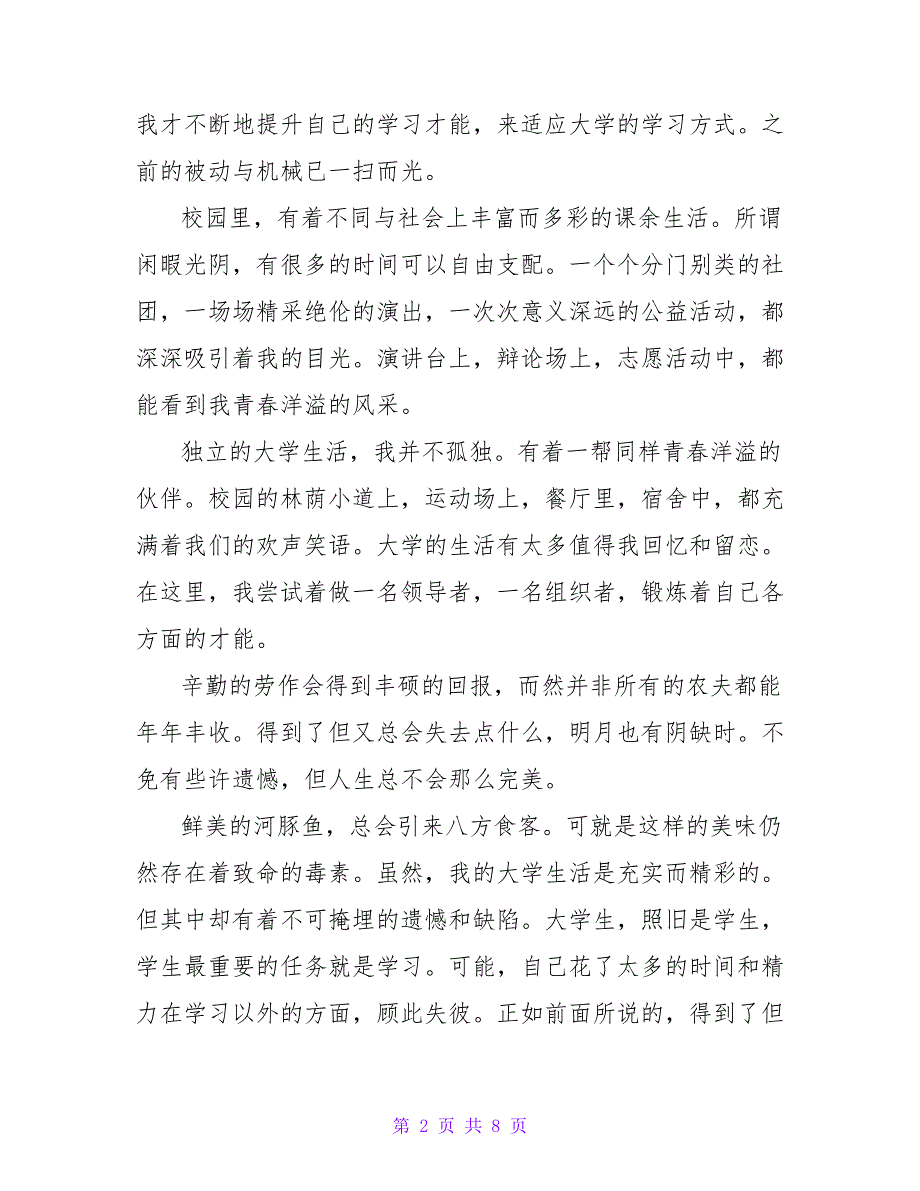 我才不断地提升自己的学习才能，来适应大学的学习方式。之
前的被动与机械已一扫而光。
校园里，有着不同与社会上丰富而多彩的课余生活。所谓
闲暇光阴，有很多的时间可以自由支配。一个个分门别类的社
团，一场场精采绝伦的演出，一次次意义深远的公益活动，都
深深吸引着我的目光。演讲台上，辩论场上，志愿活动中，都
能看到我青春洋溢的风采。
独立的大学生活，我并不孤独。有着一帮同样青春洋溢的
伙伴。校园的林荫小道上，运动场上，餐厅里，宿舍中，都充
满着我们的欢声笑语。大学的生活有太多值得我回忆和留恋。
在这里，我尝试着做一名领导者，一名组织者，锻炼着自己各
方面的才能。
辛勤的劳作会得到丰硕的回报，而然并非所有的农夫都能
年年丰收。得到了但又总会失去点什么，明月也有阴缺时。不
免有些许遗憾，但人生总不会那么完美。
鲜美的河豚鱼，总会引来八方食客。可就是这样的美味仍
然存在着致命的毒素。虽然，我的大学生活是充实而精彩的。
但其中却有着不可掩埋的遗憾和缺陷。大学生，照旧是学生，
学生最重要的任务就是学习。可能，自己花了太多的时间和精
力在学习以外的方面，顾此失彼。正如前面所说的，得到了但
第 2 页 共 8 页